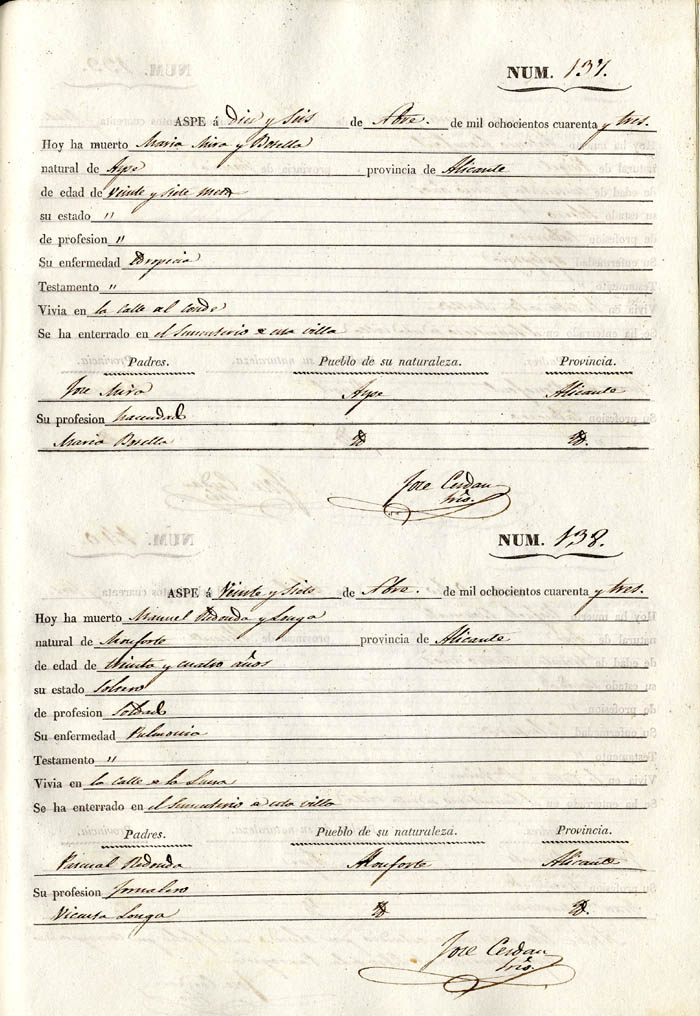 NUM. 137.
ASPE á Diez y Seis de Nbre. de mil ochocientos cuarenta y tres.
Hoy ha muerto Maria Miro y Botella
natural de Aspe provincia de Alicante
de edad de Veinte y siete meses
su estado "
de profesion "
Su enfermedad Hidropecia
Testamento "
Vivia en la calle del conde
Se ha enterrado en el Sementerio de esta villa
Padres. Pueblo de su naturaleza. Provincia.
Jose Miro Aspe Alicante
Su profesion hacendado
Maria Botella Yd. Yd.
Jose Cerdan
NUM. 138.
ASPE á Veinte y Siete de Nbre. de mil ochocientos cuarenta y tres.
Hoy ha muerto Manuel Redondo y Longa
natural de Monforte provincia de Alicante
de edad de treinta y cuatro años
su estado Soltero
de profesion Soldado
Su enfermedad Pulmonia
Testamento "
Vivia en la calle de la
Se ha enterrado en el Sementerio de esta villa
Padres. Pueblo de su naturaleza. Provincia.
Pascual Redondo Monforte Alicante
Su profesion Jornalero
Vicenta Longa Yd. Yd.
Jose Cerdan